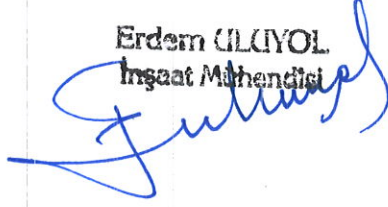 Erdem ULUYOL
İnşaat Mühendisi